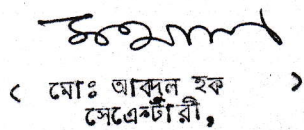 ( মোঃ আবদুল হক )
সেক্রেন্টারী,